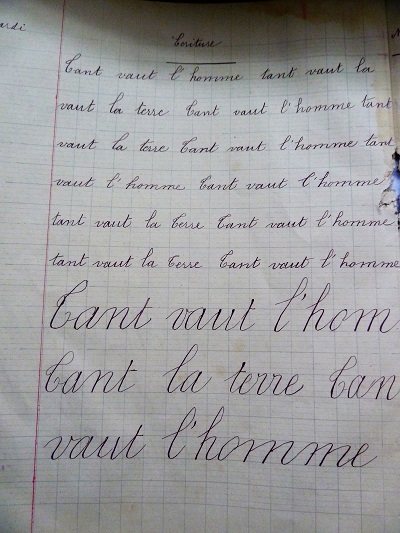 ardi
Ecriture
Tant vaut l'homme tant vaut la
vaut la terre Tant vaut l'homme tant
vaut la terre Tant vaut l'homme tant
vaut l'homme Tant vaut l'homme
tant vaut la Terre Tant vaut l'homme
tant vaut la Terre Tant vaut l'homme
Tant vaut l'hom
Tant la terre Tan
vaut l'homme